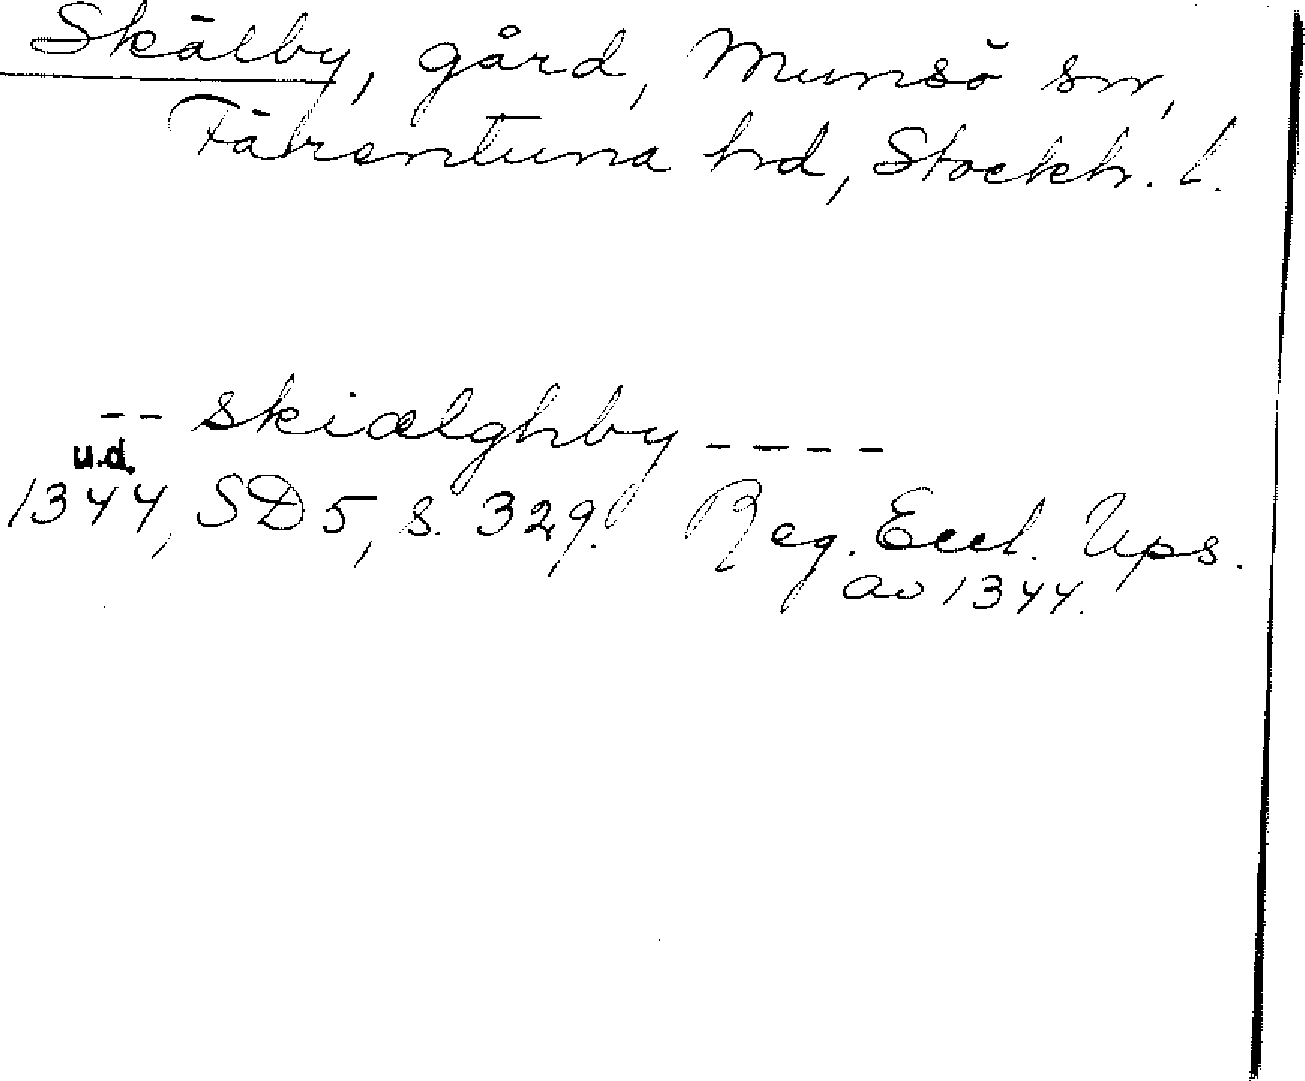 Skälby, gård, Munsö sn,
Färentuna hd, Stockh. l.
-- skiælghby ----
u.d.
1344, SD 5, s. 329. Reg. Eccl. Ups.
av 1344.